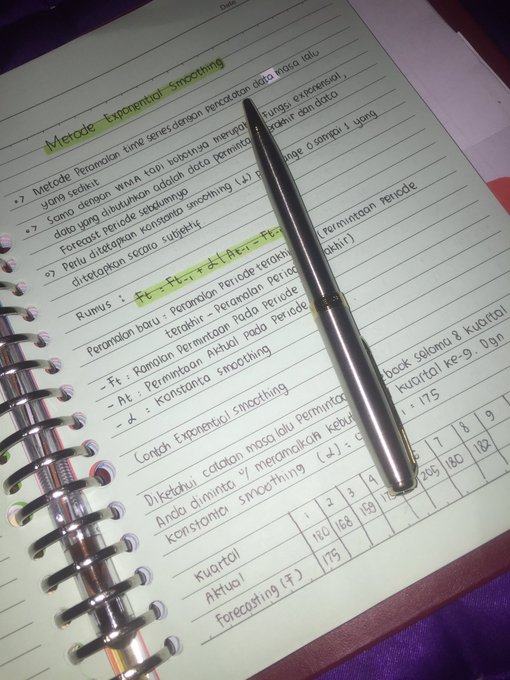 Date
Metode Exponential Smoothing
•> Metode Peramalan time series dengan pencatatan data masa lalu
yang sedikit
•> Sama dengan WMA tapi bobotnya Fungsi exponensial,
data yang dibutuhkan adalah data terakhir dan data
Forecast Periode sebelumnya
•> Perlu ditetapkan konstanta smoothing (α) range 0 sampai 1 yang
ditetapkan secara subjektif
Rumus : Ft = Ft-1 + α (At-1 - Ft-
Peramalan baru : Peramalan Periode (Permintaan Periode
terakhir - Peramalan
- Ft : Ramalan Permintaan Pada Periode
- At : Permintaan Aktual Pada Periode
- α : Konstanta smoothing
Contoh Exponential smoothing
Diketahui catatan masa lalu selama 8 kuartal
Anda diminta u/ meramalkan kuartal ke-9. Dgn
konstanta smoothing (α) = = 175
Kuartal 1 2 3 4 7 8 9
Aktual 180 168 159 205 180 182
Forecasting (F) 175